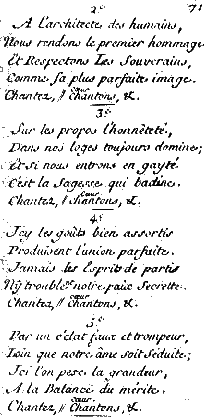 2.e 71
A l'architecte des humains,
Nous rendons le premier hommage
Et Respectons Les Souverains,
Comme sa plus parfaite image.
Chantez, // cœur Chantons, &.
3.e
Sur les propos l'honnêteté,
Dans nos loges toujours domine;
Et si nous entrons en gayté
C'est la Sagesse qui badine.
Chantez, // cœur Chantons, &.
4.e
Icy les goûts bien assortis
Produisent l'union parfaite.
Jamais les Esprits de partis
N'y troublent notre paix Secrette.
Chantez, // cœur Chantons, &.
5.e
Par un éclat faux et trompeur,
Loin que notre âme soit Séduite;
Ici l'on pese la grandeur,
A la Balance du mérite.
Chantez, // cœur Chantons, &.